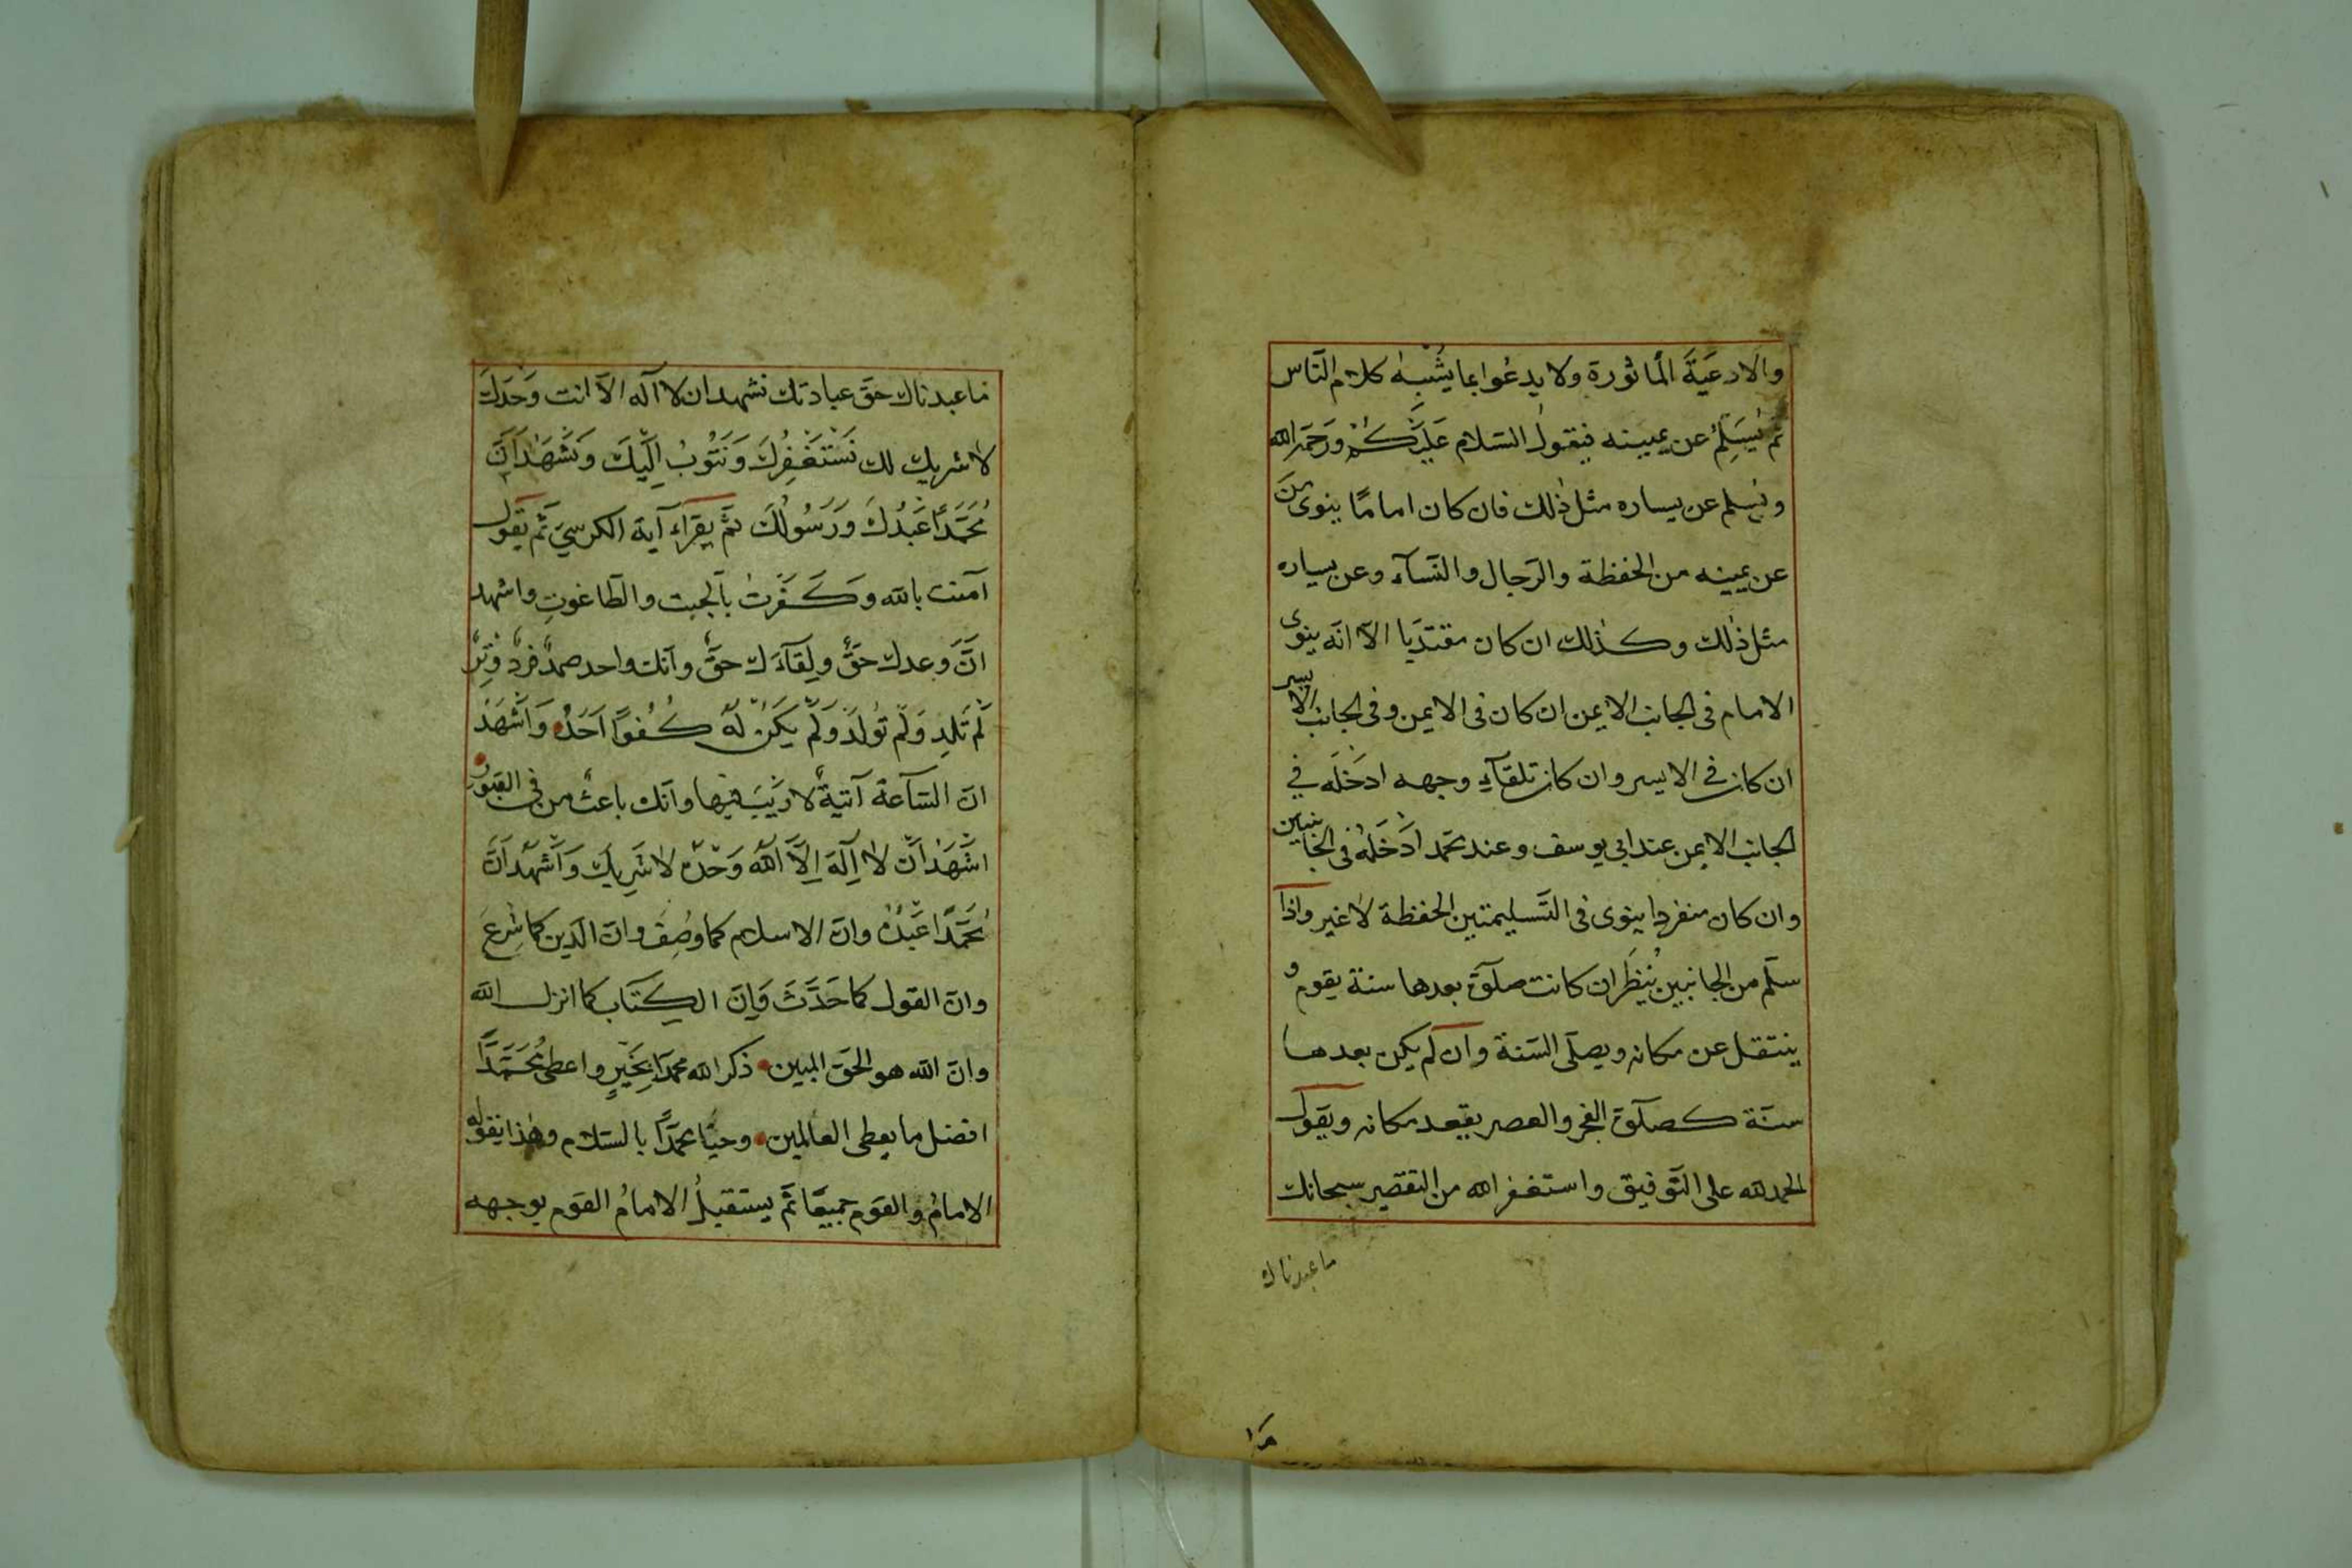 والادعيَةَ المأثورة ولا يدعُوا بما يشْبِهُ كلام النّاس
ثم يُسَلِّمُ عن يمينه فيقول السّلام عَلَيْكُمْ ورَحمة الله
ويسلم عن يساره مثل ذٰلك فان كان امامًا ينوى مَنْ
عن يمينه من الحفظة والرّجال والنّسآء وعن يساره
مثل ذٰلك وكذٰلك ان كان مقتدَيا الّا انّه ينوى
الامام فى الجانب الايمن ان كان فى الايمن وفى الجانب الايسر
ان كان فى الايسر وان كان تلقآءِ وجهه ادخَلَه في
الجانب الايمن عند ابي يوسف وعند محمد ادْخَلَهُ فى الجانبين
وان كان منفردا ينوى فى التَّسليمتين الحفظة لا غير واذا
سلّم من الجانبين يُنظَر ان كانت صلٰوة بعدها سنة يقوم و
ينتقل عن مكانه ويصلّى السّنة وان لم يكن بعدها
سنّة كصلٰوة الفجر والعصر يقعد مكانه ويقول
الحمد لله على التّوفيق واستغفر الله من التقصير سبحانك
ما عبدناك
ما عبدناك حقّ عبادتك نشهد ان لا اله الّا انت وَحْدَكَ
لا شريك لك نَسْتَغْفِرُكَ وَنَتُوبُ اِلَيْكَ وَنَشْهَدُ اَنَّ
مُحَمَّدًا عَبْدُكَ وَرَسُولُكَ ثمّ يقراء آية الكرسيّ ثم يقول
آمنت بالله وَكَفَرتُ بالجبت والطّاغوتِ واشهد
انّ وعدك حَقٌّ ولِقآءَك حقٌّ وانّك واحد صمدٌ فردٌ وِتِرٌ
لَمْ تَلِد وَلَم تُولَدْ وَلَمْ يَكُنْ لَهُ كُفُوًا اَحَدٌ وَاَشْهَدُ
انّ السّاعة آتيةٌ لا رَيْبَ فيها وانّك باعث من فى القبور
اشْهَدُ اَنْ لا اِلٰهَ اِلَّا اللّٰهُ وَحْدَهُ لا شَرِيكَ وَاَشْهَدُ اَنَّ
مُحَمَّدًا عَبْدُهُ وانّ الاسلام كما وُصِفَ وانّ الدّين كما شُرِعَ
وانّ القول كما حَدَّثَ وَاِنّ الكِتَاب كما انزل الله
وانّ الله هو الحقّ المبين ذكر الله محمّدًا بِخَيْرٍ واعطى مُحَمَّدًا
افضل ما يعطى العٰالمين وحيّا محمّدًا بالسّلام وهٰذا يقوله
الامامُ والقوم جميعًا ثمّ يستقبلُ الامامُ القوم بوجهه